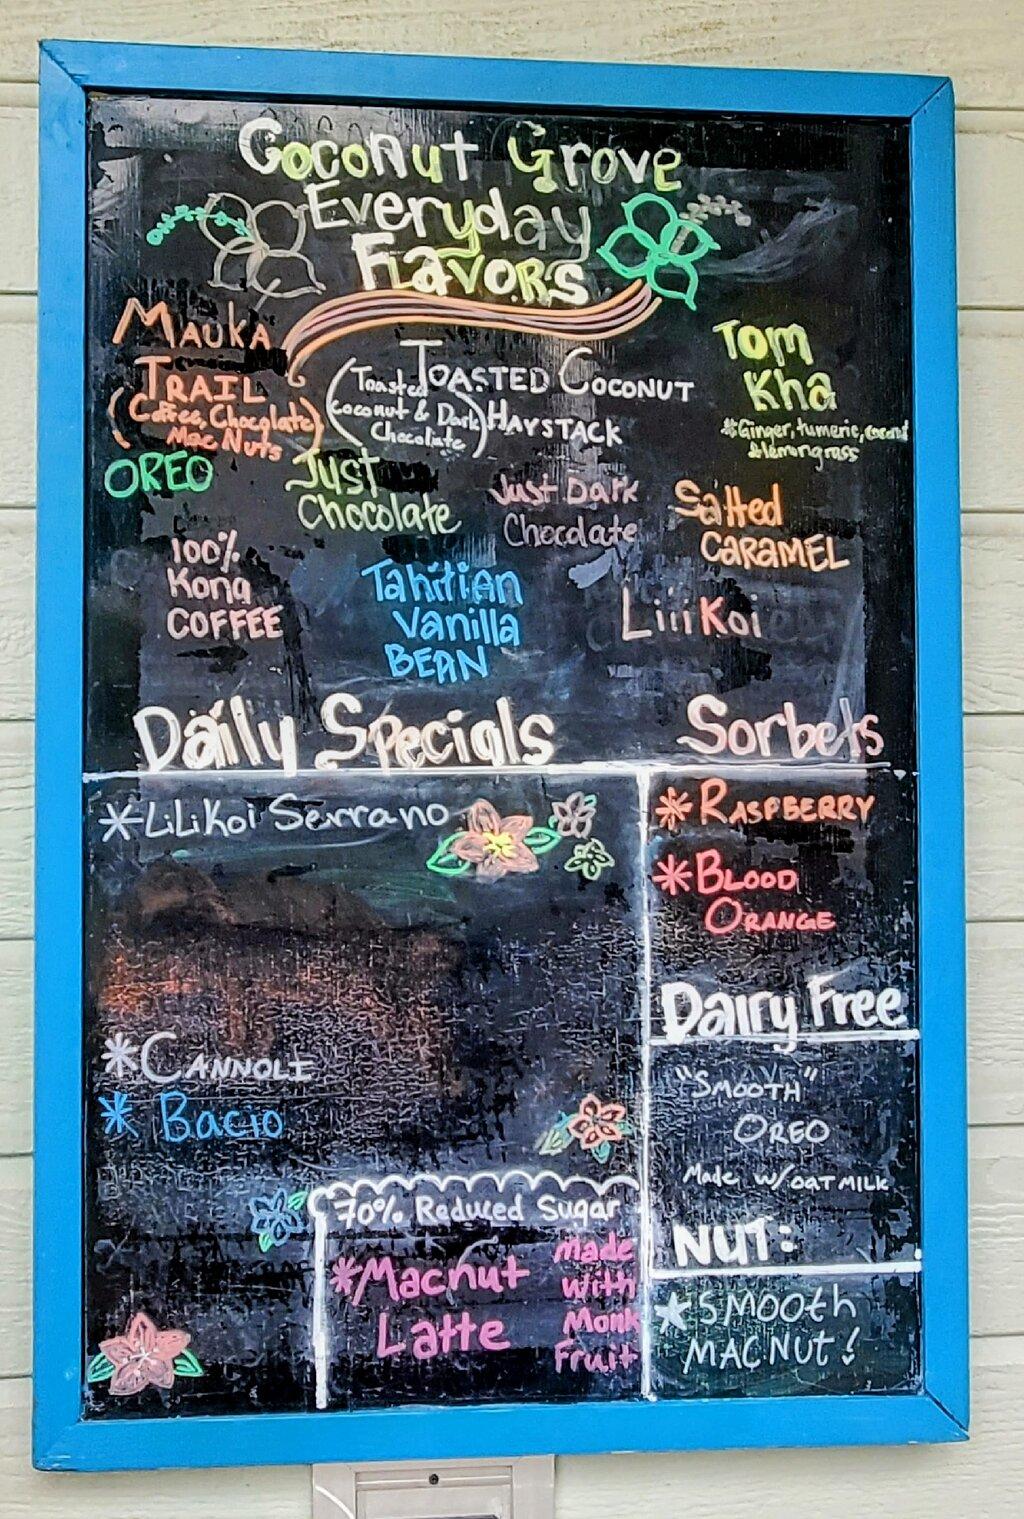 Coconut Grove
Everyday
Flavors
MAUKA
TRAIL
(Coffee, Chocolate)
Mac Nuts
TOASTED COCONUT
HAYSTACK
(Toasted
Coconut & Dark
Chocolate)
Tom
Kha
*Ginger, tumeric, coconut
& lemongrass
OREO
Just
Chocolate
Just Dark
Chocolate
Salted
CARAMEL
100%
Kona
COFFEE
Tahitian
Vanilla
BEAN
LiliKoi
Daily Specials
*LiLiKoi Serrano
*CANNOLI
* Bacio
70% Reduced Sugar
*Macnut
Latte
made
with
Monk
Fruit
Sorbets
*RASPBERRY
*BLOOD
ORANGE
Dairy Free
"SMOOTH"
OREO
Made w/OAT MILK
NUT:
★SMOOth
MACNUT!